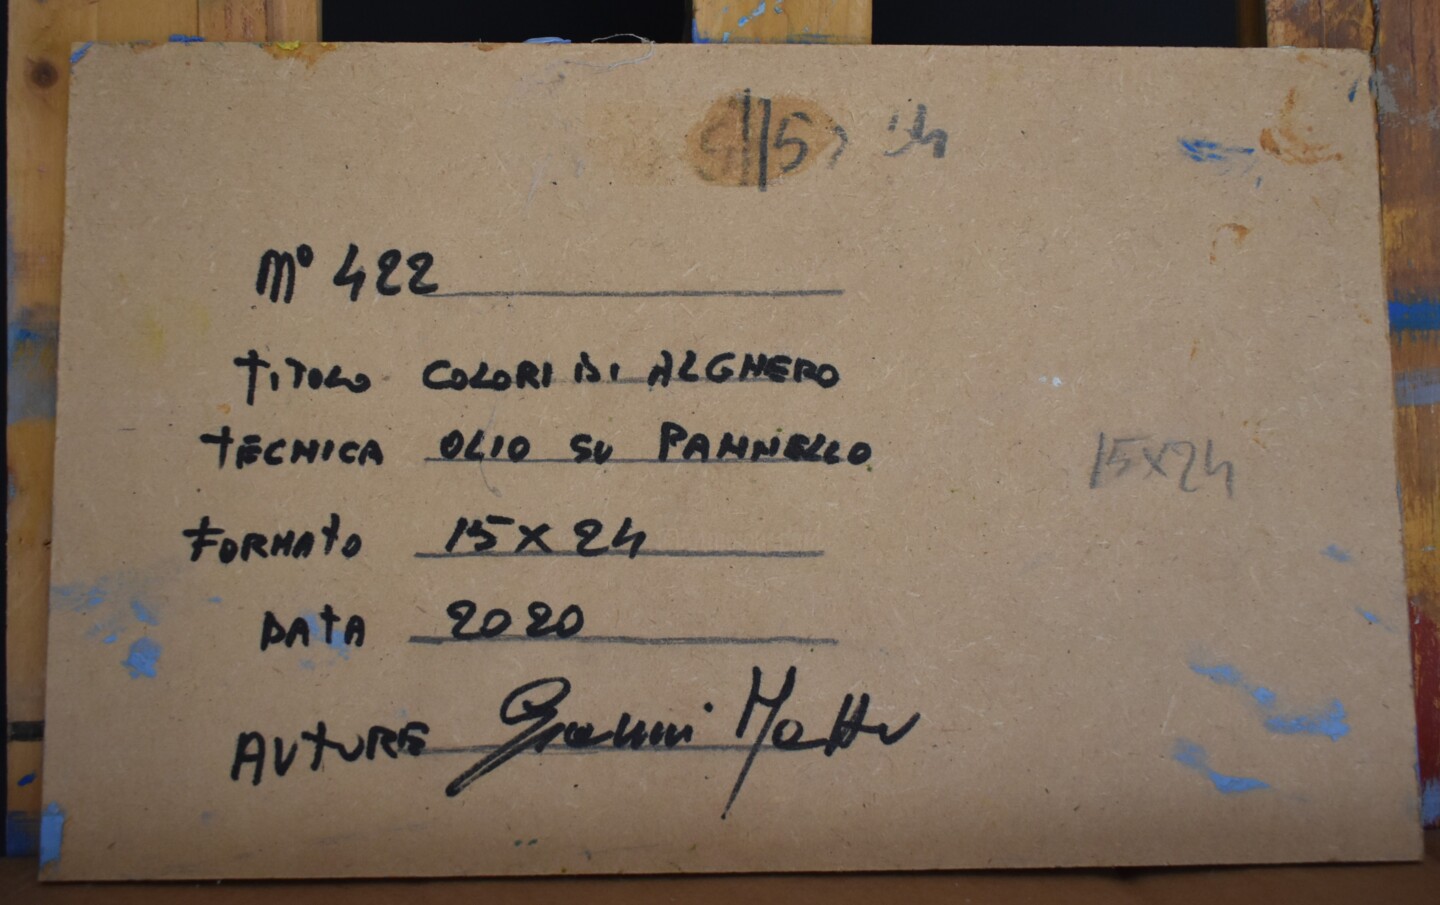 N° 422
TITOLO COLORI DI ALGHERO
TECNICA OLIO SU PANNELLO
15x24
FORMATO 15x24
DATA 2020
AUTORE Gianni